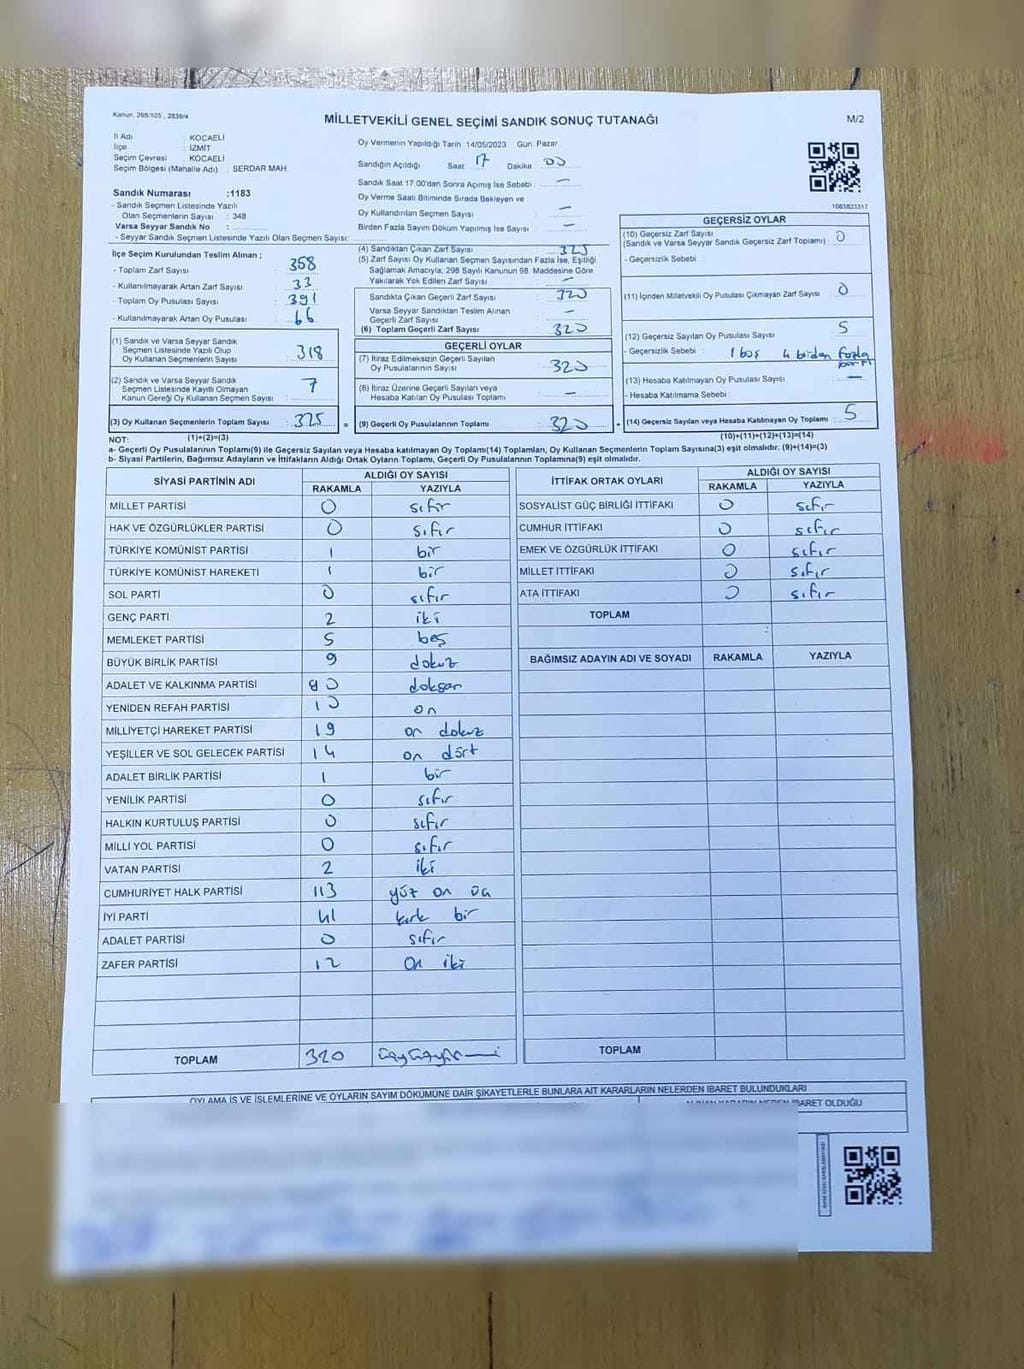 Kanun. 298/105 , 2839/4
MİLLETVEKİLİ GENEL SEÇİMİ SANDIK SONUÇ TUTANAĞI
M/2
İl Adı : KOCAELİ
İlçe : İZMİT
Seçim Çevresi : KOCAELİ
Seçim Bölgesi (Mahalle Adı) : SERDAR MAH
Sandık Numarası :1183
- Sandık Seçmen Listesinde Yazılı
Olan Seçmenlerin Sayısı : 348
Varsa Seyyar Sandık No :
- Seyyar Sandık Seçmen Listesinde Yazılı Olan Seçmen Sayısı:
Oy Vermenin Yapıldığı Tarih 14/05/2023 Gün Pazar
Sandığın Açıldığı Saat 17 Dakika 00
Sandık Saat 17:00'dan Sonra Açılmış İse Sebebi : —
Oy Verme Saati Bitiminde Sırada Bekleyen ve
Oy Kullandırılan Seçmen Sayısı : —
Birden Fazla Sayım Döküm Yapılmış İse Sayısı : —
1083823317
İlçe Seçim Kurulundan Teslim Alınan ;
- Toplam Zarf Sayısı : 358
- Kullanılmayarak Artan Zarf Sayısı : 33
- Toplam Oy Pusulası Sayısı : 391
- Kullanılmayarak Artan Oy Pusulası : 66
(1) Sandık ve Varsa Seyyar Sandık
Seçmen Listesinde Yazılı Olup
Oy Kullanan Seçmenlerin Sayısı : 318
(2) Sandık ve Varsa Seyyar Sandık
Seçmen Listesinde Kayıtlı Olmayan
Kanun Gereği Oy Kullanan Seçmen Sayısı : 7
(3) Oy Kullanan Seçmenlerin Toplam Sayısı : 325
(4) Sandıktan Çıkan Zarf Sayısı : 325
(5) Zarf Sayısı Oy Kullanan Seçmen Sayısından Fazla İse, Eşitliği
Sağlamak Amacıyla; 298 Sayılı Kanunun 98. Maddesine Göre
Yakılarak Yok Edilen Zarf Sayısı : —
Sandıkta Çıkan Geçerli Zarf Sayısı : 320
Varsa Seyyar Sandıktan Teslim Alınan
Geçerli Zarf Sayısı : —
(6) Toplam Geçerli Zarf Sayısı : 320
GEÇERLİ OYLAR
(7) İtiraz Edilmeksizin Geçerli Sayılan
Oy Pusulalarının Sayısı : 320
(8) İtiraz Üzerine Geçerli Sayılan veya
Hesaba Katılan Oy Pusulası Toplamı : —
= (9) Geçerli Oy Pusulalarının Toplamı : 320 +
GEÇERSİZ OYLAR
(10) Geçersiz Zarf Sayısı : 0
(Sandık ve Varsa Seyyar Sandık Geçersiz Zarf Toplamı)
- Geçersizlik Sebebi :
(11) İçinden Milletvekili Oy Pusulası Çıkmayan Zarf Sayısı : 0
(12) Geçersiz Sayılan Oy Pusulası Sayısı : 5
- Geçersizlik Sebebi : 1 boş 4 birden fazla parti
(13) Hesaba Katılmayan Oy Pusulası Sayısı : —
- Hesaba Katılmama Sebebi :
(14) Geçersiz Sayılan veya Hesaba Katılmayan Oy Toplamı : 5
NOT: (1)+(2)=(3) (10)+(11)+(12)+(13)=(14)
a- Geçerli Oy Pusulalarının Toplamı(9) ile Geçersiz Sayılan veya Hesaba katılmayan Oy Toplamı(14) Toplamları, Oy Kullanan Seçmenlerin Toplam Sayısına(3) eşit olmalıdır. (9)+(14)=(3)
b- Siyasi Partilerin, Bağımsız Adayların ve İttifakların Aldığı Ortak Oyların Toplamı, Geçerli Oy Pusulalarının Toplamına(9) eşit olmalıdır.
SİYASİ PARTİNİN ADI ALDIĞI OY SAYISI
RAKAMLA YAZIYLA
MİLLET PARTİSİ 0 sıfır
HAK VE ÖZGÜRLÜKLER PARTİSİ 0 sıfır
TÜRKİYE KOMÜNİST PARTİSİ 1 bir
TÜRKİYE KOMÜNİST HAREKETİ 1 bir
SOL PARTİ 0 sıfır
GENÇ PARTİ 2 iki
MEMLEKET PARTİSİ 5 beş
BÜYÜK BİRLİK PARTİSİ 9 dokuz
ADALET VE KALKINMA PARTİSİ 90 doksan
YENİDEN REFAH PARTİSİ 10 on
MİLLİYETÇİ HAREKET PARTİSİ 19 on dokuz
YEŞİLLER VE SOL GELECEK PARTİSİ 14 on dört
ADALET BİRLİK PARTİSİ 1 bir
YENİLİK PARTİSİ 0 sıfır
HALKIN KURTULUŞ PARTİSİ 0 sıfır
MİLLİ YOL PARTİSİ 0 sıfır
VATAN PARTİSİ 2 iki
CUMHURİYET HALK PARTİSİ 113 yüz on üç
İYİ PARTİ 41 kırk bir
ADALET PARTİSİ 0 sıfır
ZAFER PARTİSİ 12 on iki
TOPLAM 320 üçyüzyirmi
İTTİFAK ORTAK OYLARI ALDIĞI OY SAYISI
RAKAMLA YAZIYLA
SOSYALİST GÜÇ BİRLİĞİ İTTİFAKI 0 sıfır
CUMHUR İTTİFAKI 0 sıfır
EMEK VE ÖZGÜRLÜK İTTİFAKI 0 sıfır
MİLLET İTTİFAKI 0 sıfır
ATA İTTİFAKI 0 sıfır
TOPLAM
BAĞIMSIZ ADAYIN ADI VE SOYADI RAKAMLA YAZIYLA
TOPLAM
OYLAMA İŞ VE İŞLEMLERİNE VE OYLARIN SAYIM DÖKÜMÜNE DAİR ŞİKAYETLERLE BUNLARA AİT KARARLARIN NELERDEN İBARET BULUNDUKLARI
ALINAN KARARIN NEDEN İBARET OLDUĞU